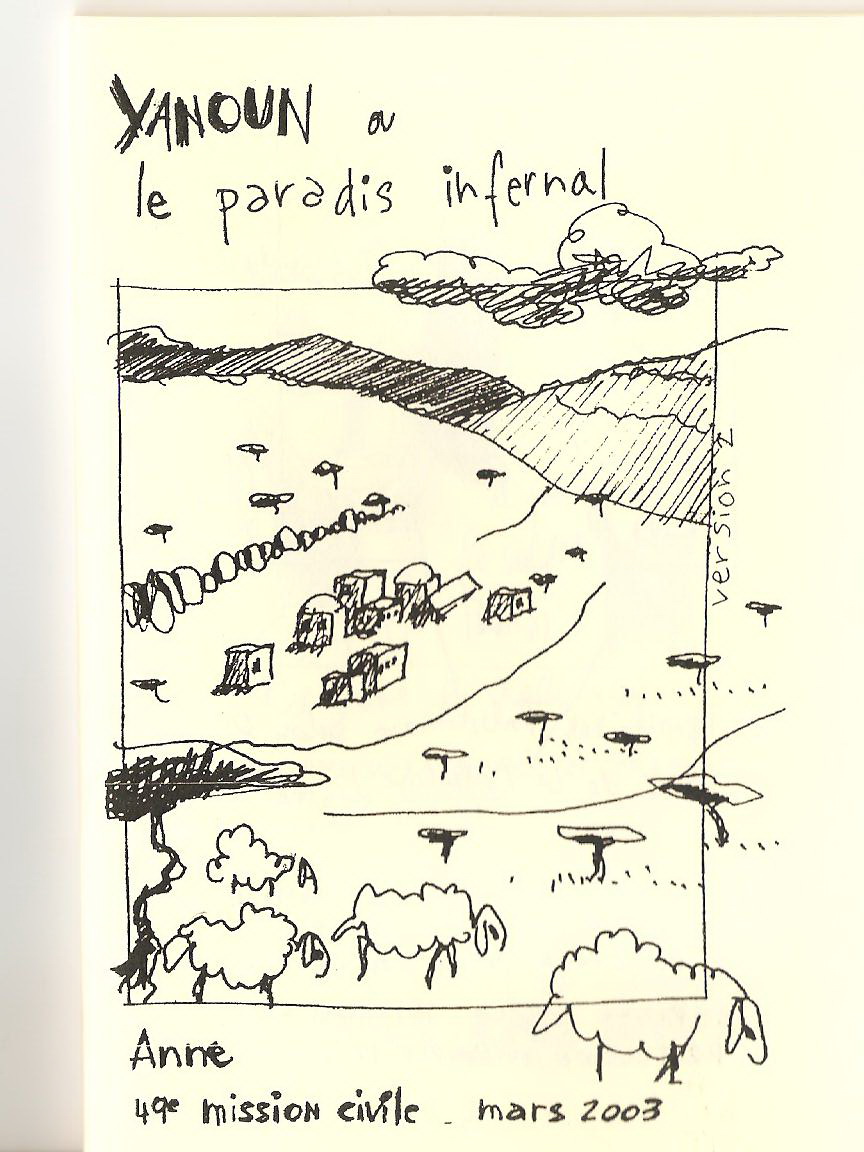 YANOUN ou
le paradis infernal
version 2
Anne
49e mission civile - mars 2003